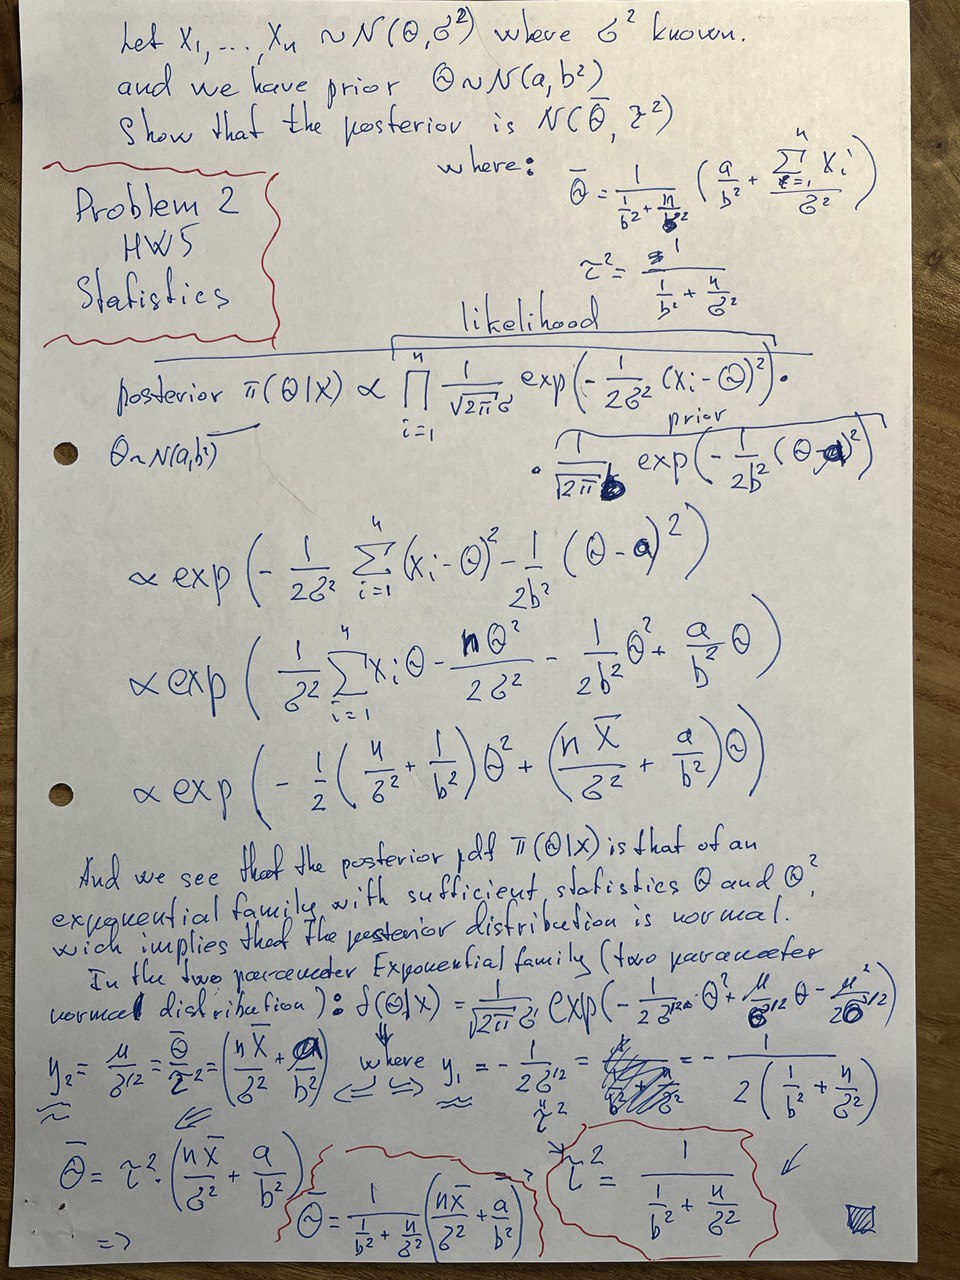 Let X₁, ..., Xₙ ~ N(Θ, σ²) where σ² known.
and we have prior Θ ~ N(a, b²)
Show that the posterior is N(Θ̄, τ²)
where:
Θ̄ = 1/(1/b² + n/σ²) (a/b² + ∑ᵢ₌₁ⁿ Xᵢ/σ²)
τ² = 1/(1/b² + n/σ²)
Problem 2
HW5
Statistics
likelihood
posterior π(Θ|X) ∝ ∏ᵢ₌₁ⁿ 1/(√2π σ) exp(-1/2σ² (Xᵢ - Θ)²) ·
prior
Θ ~ N(a, b²)
· 1/(√2π b) exp(-1/2b² (Θ - a)²)
∝ exp(-1/2σ² ∑ᵢ₌₁ⁿ (Xᵢ - Θ)² - 1/2b² (Θ - a)²)
∝ exp(1/σ² ∑ᵢ₌₁ⁿ Xᵢ Θ - nΘ²/2σ² - 1/2b² Θ² + a/b² Θ)
∝ exp(-1/2 (n/σ² + 1/b²) Θ² + (nX̄/σ² + a/b²) Θ)
And we see that the posterior pdf π(Θ|X) is that of an
exponential family with sufficient statistics Θ and Θ²,
wich implies that the posterior distribution is normal.
In the two parameter Exponential family (two parameter
normal distribution): f(Θ|X) = 1/(√2π σ') exp(-1/2σ'² · Θ² + μ/σ'² Θ - μ²/2σ'²)
y₂ = μ/σ'² = Θ̄/τ² = (nX̄/σ² + a/b²) where y₁ = -1/2σ'² = = -1/(2(1/b² + n/σ²))
τ²
Θ̄ = τ² · (nX̄/σ² + a/b²)
τ² = 1/(1/b² + n/σ²)
=> Θ̄ = 1/(1/b² + n/σ²) (nX̄/σ² + a/b²)